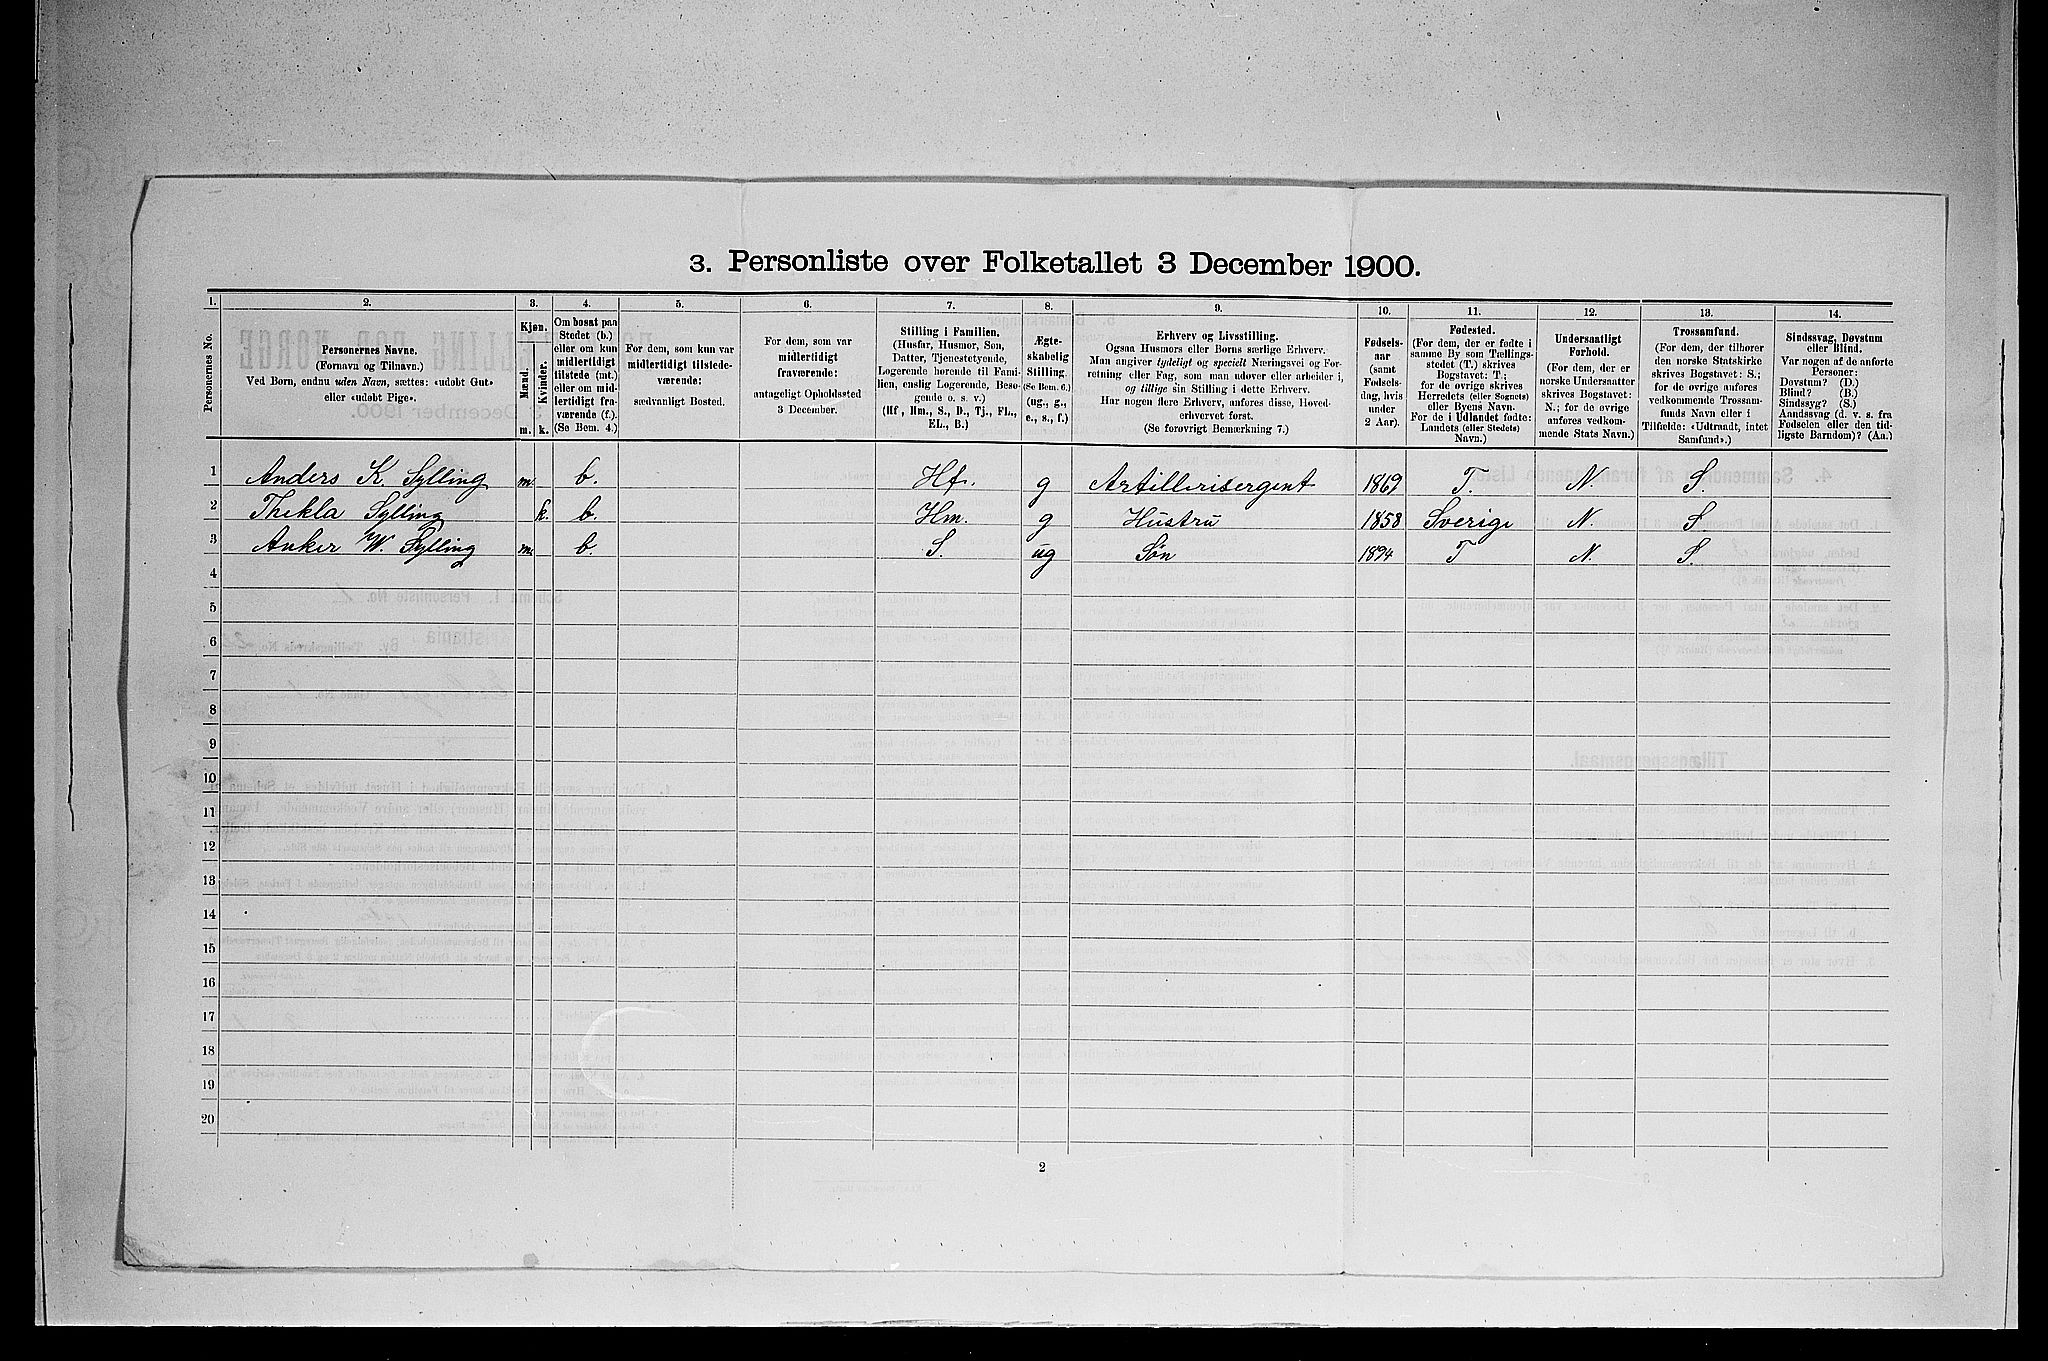 3. Personliste over Folketallet 3 December 1900.
1. 2. 3. 4. 5. 6. 7. 8. 9. 10. 11. 12. 13. 14.
Personernes No.
Personernes Navne.
(Fornavn og Tilnavn.)
Ved Børn, endnu uden Navn, sættes: «udøbt Gut»
eller «udøbt Pige».
Kjøn.
Mænd.
Kvinder.
m. k.
Om bosat paa
Stedet (b.)
eller om kun
midlertidigt
tilstede (mt.)
eller om mid-
lertidigt fra-
værende (f.).
(Se Bem. 4.)
For dem, som kun var
midlertidigt tilstede-
værende:
sædvanligt Bosted.
For dem, som var
midlertidigt
fraværende:
antageligt Opholdssted
3 December.
Stilling i Familien.
(Husfar, Husmor, Søn,
Datter, Tjenestetyende,
Logerende hørende til Fami-
lien, enslig Logerende, Besø-
gende o. s. v.)
(Hf, Hm., S., D., Tj., FL.,
EL., B.)
Ægte-
skabelig
Stilling.
(Se Bem. 6.)
(ug., g.,
e., s., f.)
Erhverv og Livsstilling.
Ogsaa Husmors eller Børns særlige Erhverv.
Man angiver tydeligt og specielt Næringsvei og For-
retning eller Fag, som man udøver eller arbeider i,
og tillige sin Stilling i dette Erhverv.
Har nogen flere Erhverv, anføres disse, Hoved-
erhvervet først.
(Se forøvrigt Bemærkning 7.)
Fødsels-
aar
(samt
Fødsels-
dag, hvis
under
2 Aar).
Fødested.
(For dem, der er fødte i
samme By som Tællings-
stedet (T.) skrives
Bogstavet: T.;
for de øvrige skrives
Herredets (eller Sognets)
eller Byens Navn.
For de i Udlandet fødte:
Landets (eller Stedets)
Navn.)
Undersaatligt
Forhold.
(For dem, der er
norske Undersaatter
skrives Bogstavet:
N.; for de øvrige
anføres vedkom-
mende Stats Navn.)
Trossamfund.
(For dem, der tilhører
den norske Statskirke
skrives Bogstavet: S.;
for de øvrige anføres
vedkommende Trossam-
funds Navn eller i
Tilfælde: «Udtraadt, intet
Samfund».)
Sindssvag, Døvstum
eller Blind.
Var nogen af de anførte
Personer:
Døvstum? (D.)
Blind? (B.)
Sindssyg? (S.)
Aandssvag (d. v. s. fra
Fødselen eller den tid-
ligste Barndom)? (Aa.)
1 Anders K. Sylling m. b. Hf. g Artillerisergent 1869 T. N. S.
2 Thekla Sylling k. b. Hm. g Hustru 1858 Sverige N. S
3 Anker W. Sylling m. b. S. ug Søn 1894 T N. S.
4
5
6
7
8
9
10
11
12
13
14
15
16
17
18
19
20
2